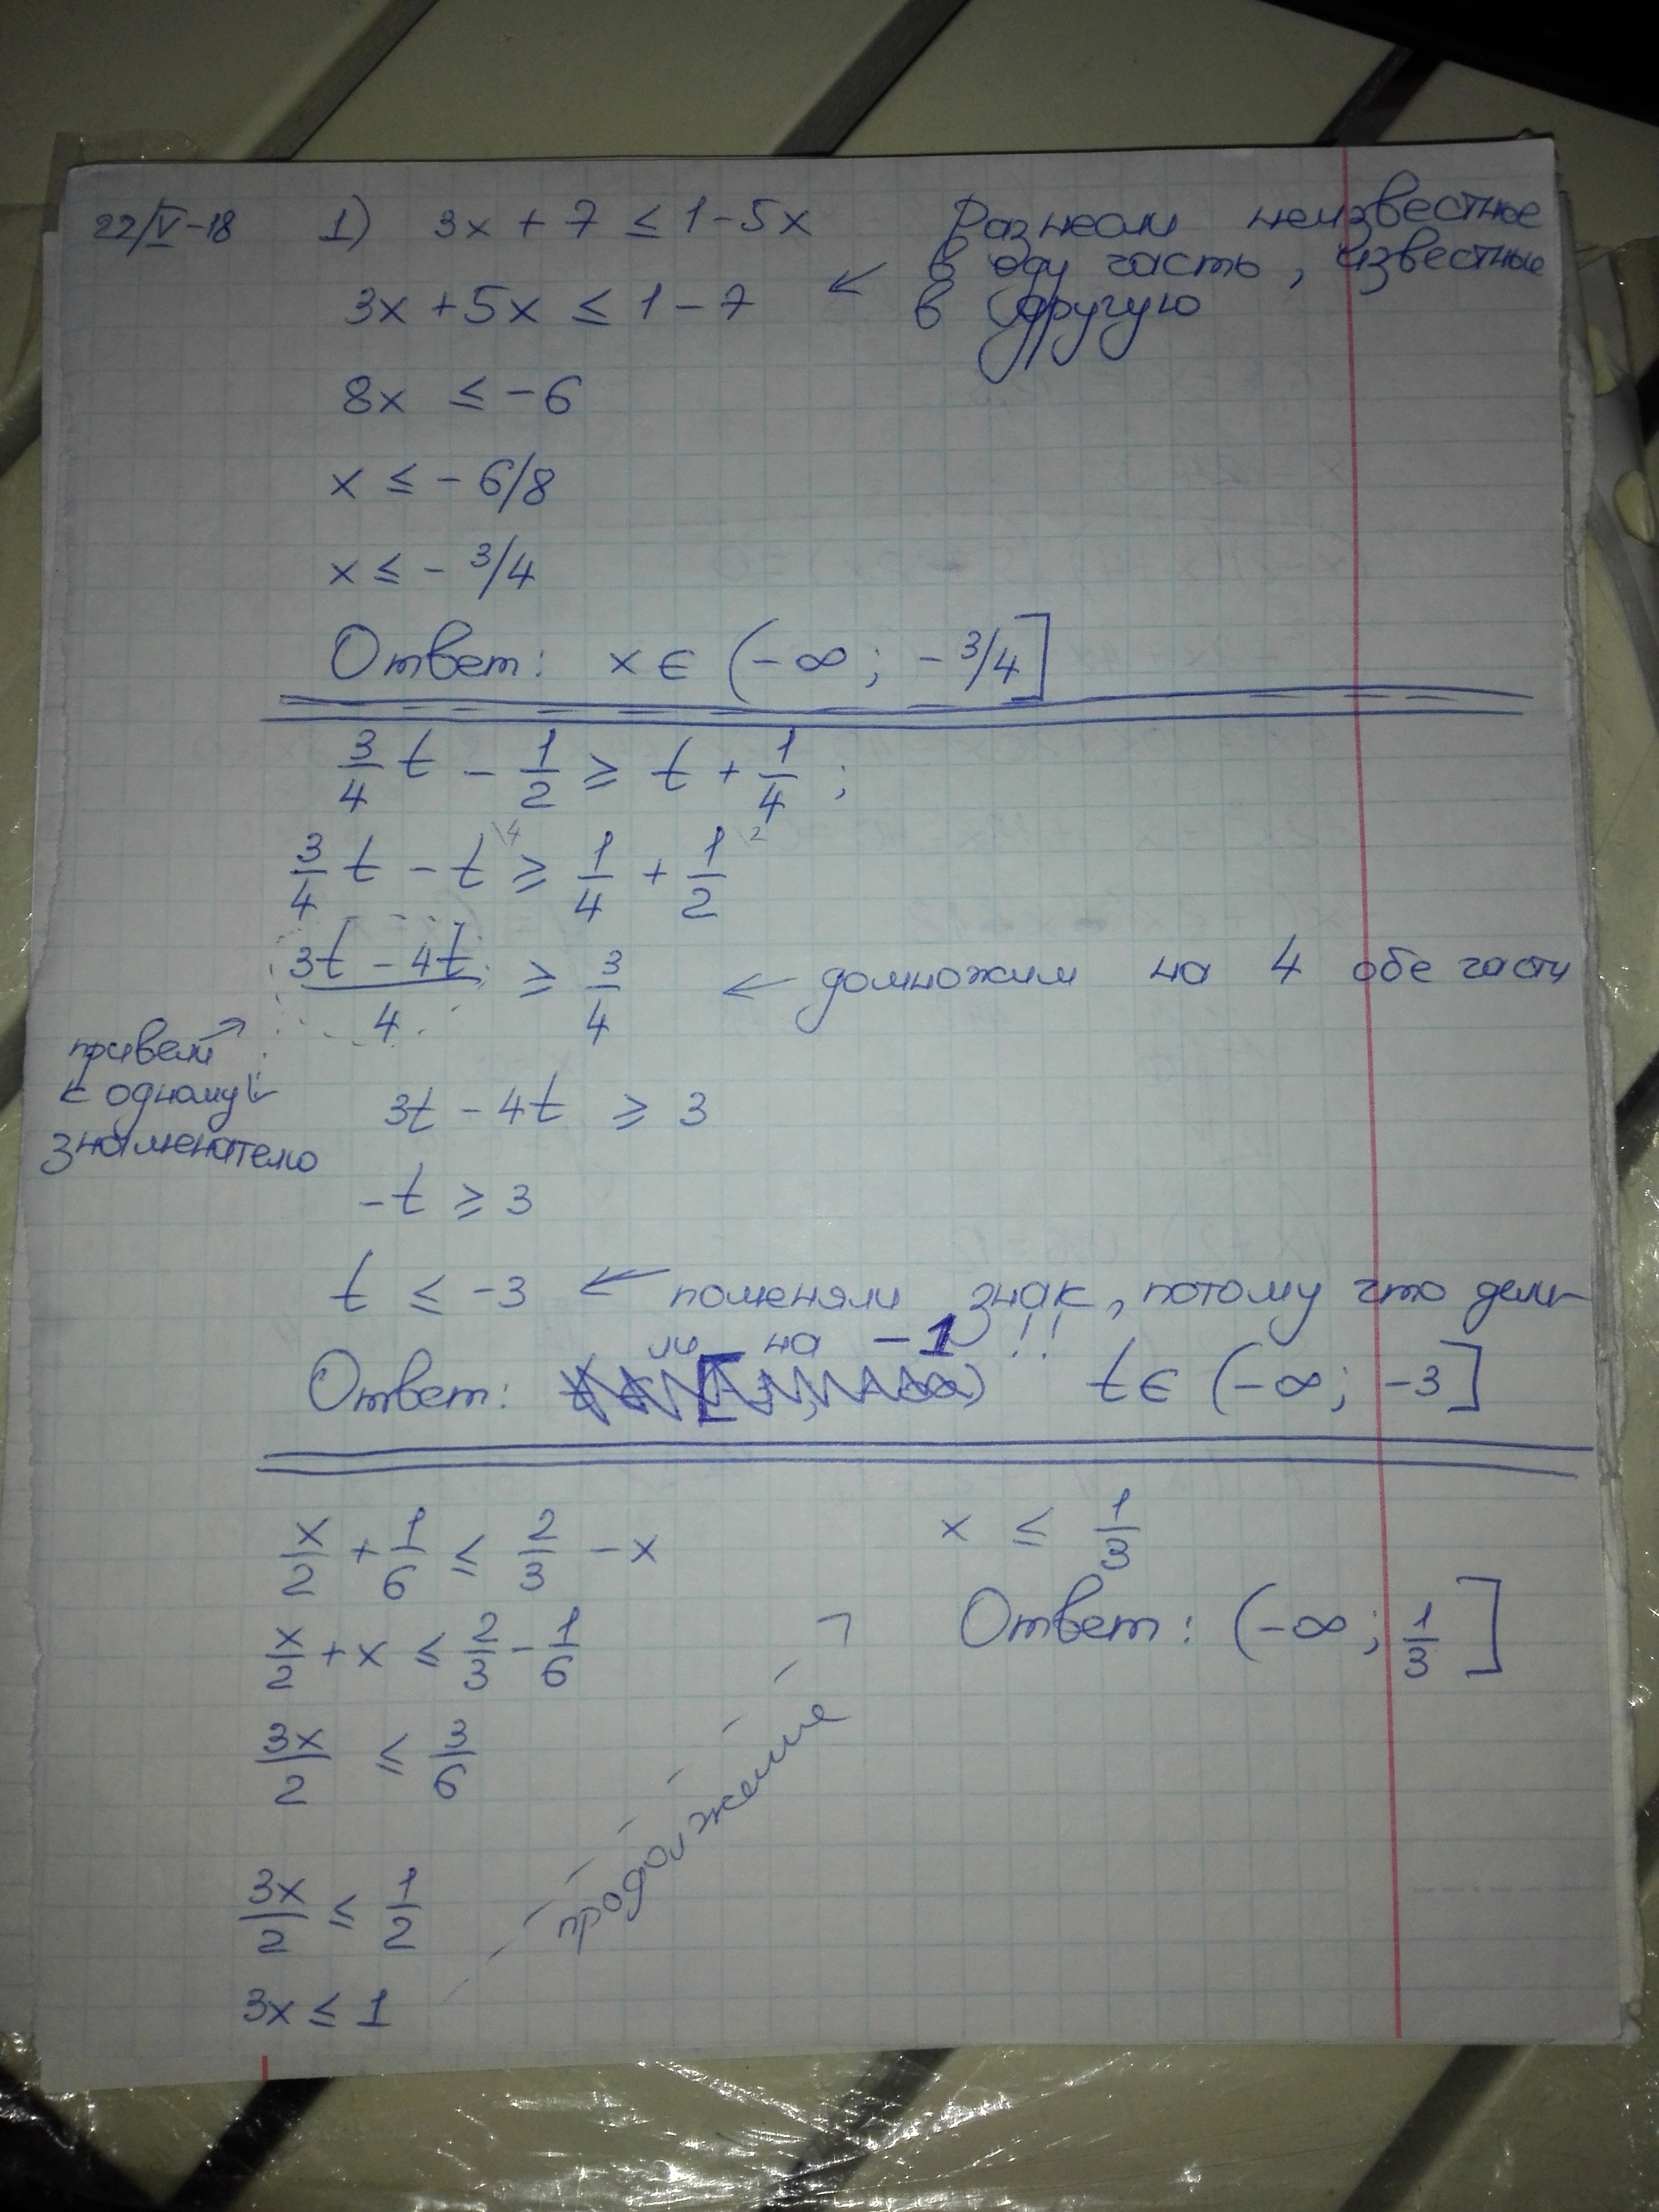 22/V-18 1) 3x + 7 ≤ 1 - 5x
Разнесли неизвестные
в оду часть, известные
в другую
← 3x + 5x ≤ 1 - 7
8x ≤ -6
x ≤ - 6/8
x ≤ - 3/4
Ответ: x ∈ (-∞; - 3/4]
3/4 t - 1/2 ≥ t + 1/4 ;
3/4 t - t \4 ≥ 1/4 + 1/2 \2
(3t - 4t)/4 ≥ 3/4 ← домножим на 4 обе части
привели →
к одному
знаменателю
3t - 4t ≥ 3
-t ≥ 3
t ≤ -3 ← поменяли знак, потому что дели-
ли на -1 !!
Ответ: t ∈ (-∞; -3]
x/2 + 1/6 ≤ 2/3 - x
x/2 + x ≤ 2/3 - 1/6
3x/2 ≤ 3/6
3x/2 ≤ 1/2
3x ≤ 1
продолжение
x ≤ 1/3
Ответ: (-∞; 1/3]